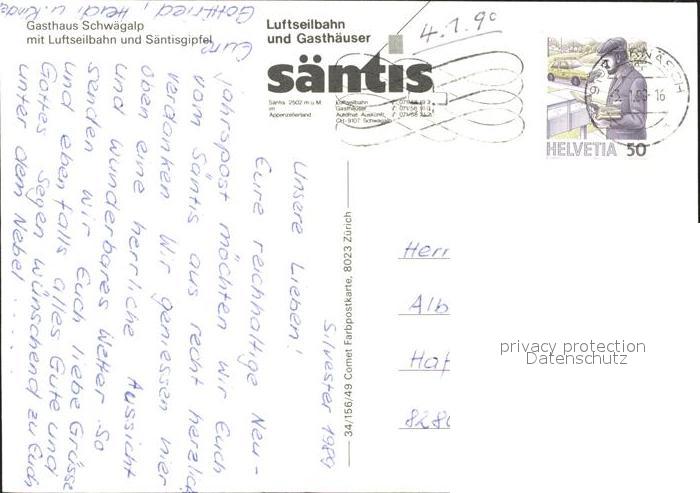 Gasthaus Schwägalp
mit Luftseilbahn und Säntisgipfel
Luftseilbahn
und Gasthäuser
säntis
Säntis 2502 m ü.M.
im
Appenzellerland
Luftseilbahn
Gasthäuser
Automat. Auskunft
CH-9107 Schwägalp
4.1.90
HELVETIA 50
Silvester 1989
Unsere Lieben!
Eure reichhaltige Neu-
jahrspost möchten wir Euch
vom Säntis aus recht herzlich
verdanken. Wir geniessen hier
oben eine herrliche Aussicht
und wunderbares Wetter. So
senden wir Euch liebe Grüsse
und ebenfalls alles Gute und
Gottes Segen wünschend zu Euch
unter dem Nebel.....
Eure
Gottfried, Heidi u. Kinder
34/156/49 Comet Farbpostkarte, 8023 Zürich
Herr
Alb
Haf
828
privacy protection
Datenschutz